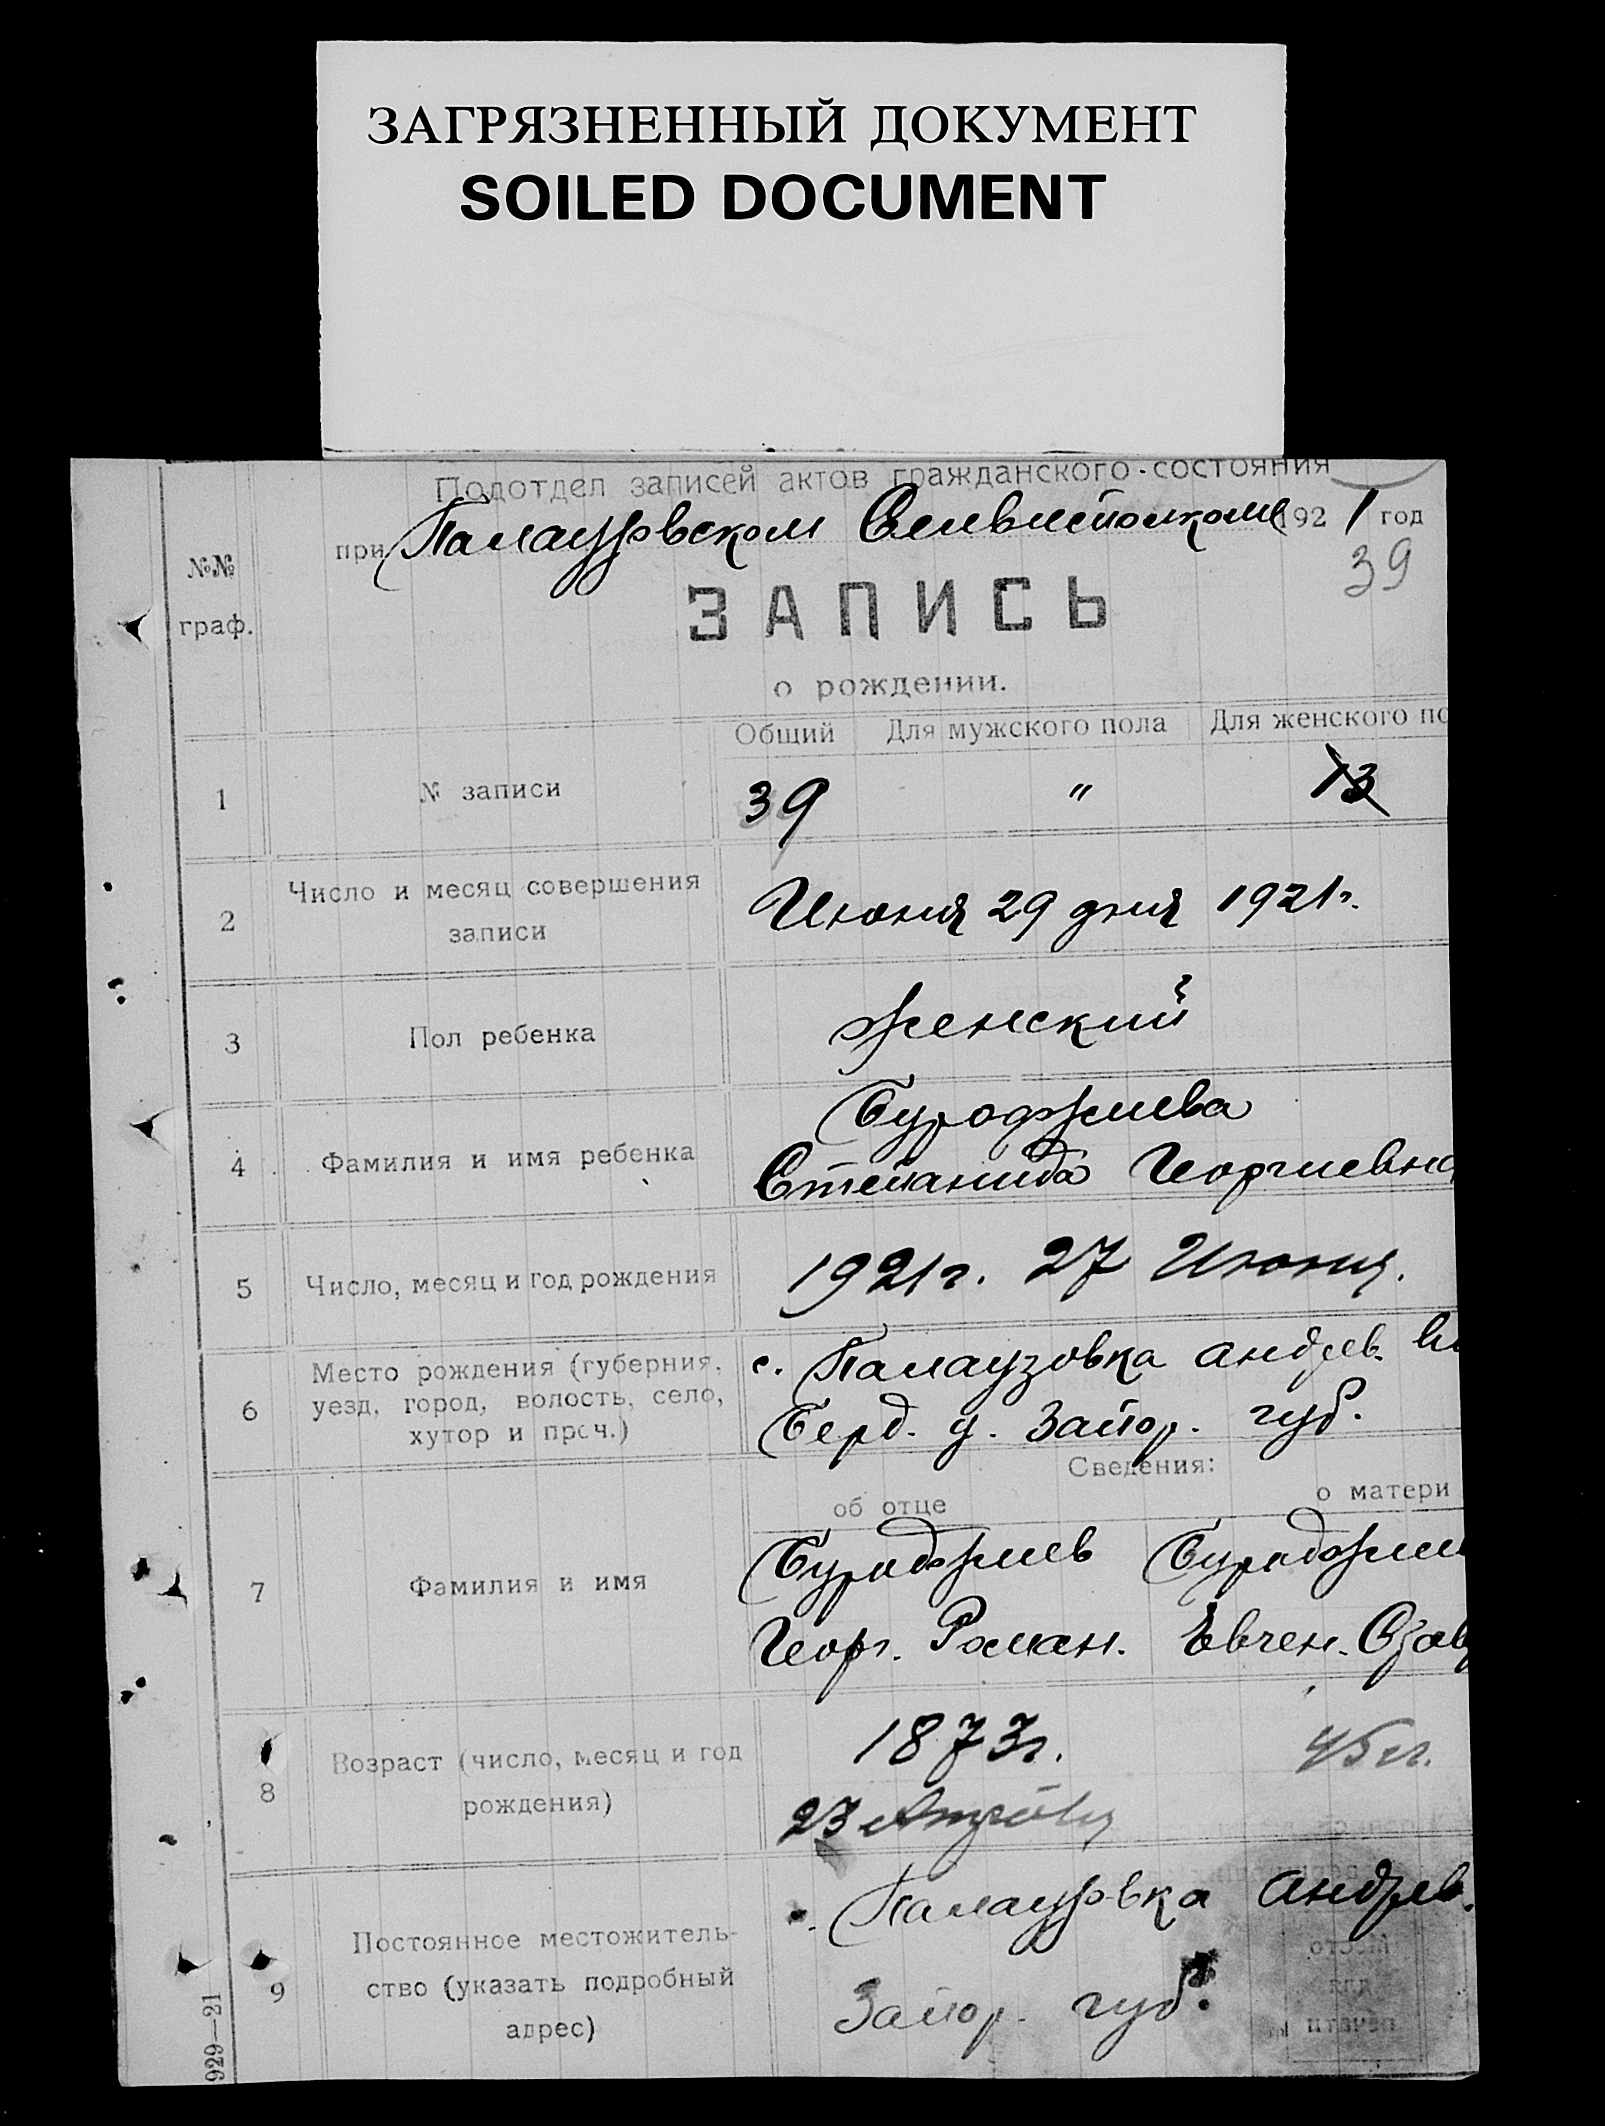 ЗАГРЯЗНЕННЫЙ ДОКУМЕНТ
SOILED DOCUMENT
Подотдел записей актов гражданского состояния
при Палаузовском Сельисполкоме 1921 год
39
№№
граф.
ЗАПИСЬ
о рождении.
Общий Для мужского пола Для женского по
1 № записи 39 " 13
2 Число и месяц совершения
записи
Июня 29 дня 1921г.
3 Пол ребенка женский
4 Фамилия и имя ребенка
Буроджиева
Степанида Георгиевна
5 Число, месяц и год рождения 1921г. 27 Июня.
6 Место рождения (губерния,
уезд, город, волость, село,
хутор и проч.)
с. Палаузовка Андрев. в
Берд. у. Запор. губ.
Сведения:
об отце о матери
7 Фамилия и имя
Буроджиев Буроджи
Георг. Роман. Евген.
8 Возраст (число, месяц и год
рождения)
1873г. 45 г.
23 Апреля
9 Постоянное местожитель-
ство (указать подробный
адрес)
с. Палаузовка Андрев.
Запор. губ.
Место
для
печати
929—21